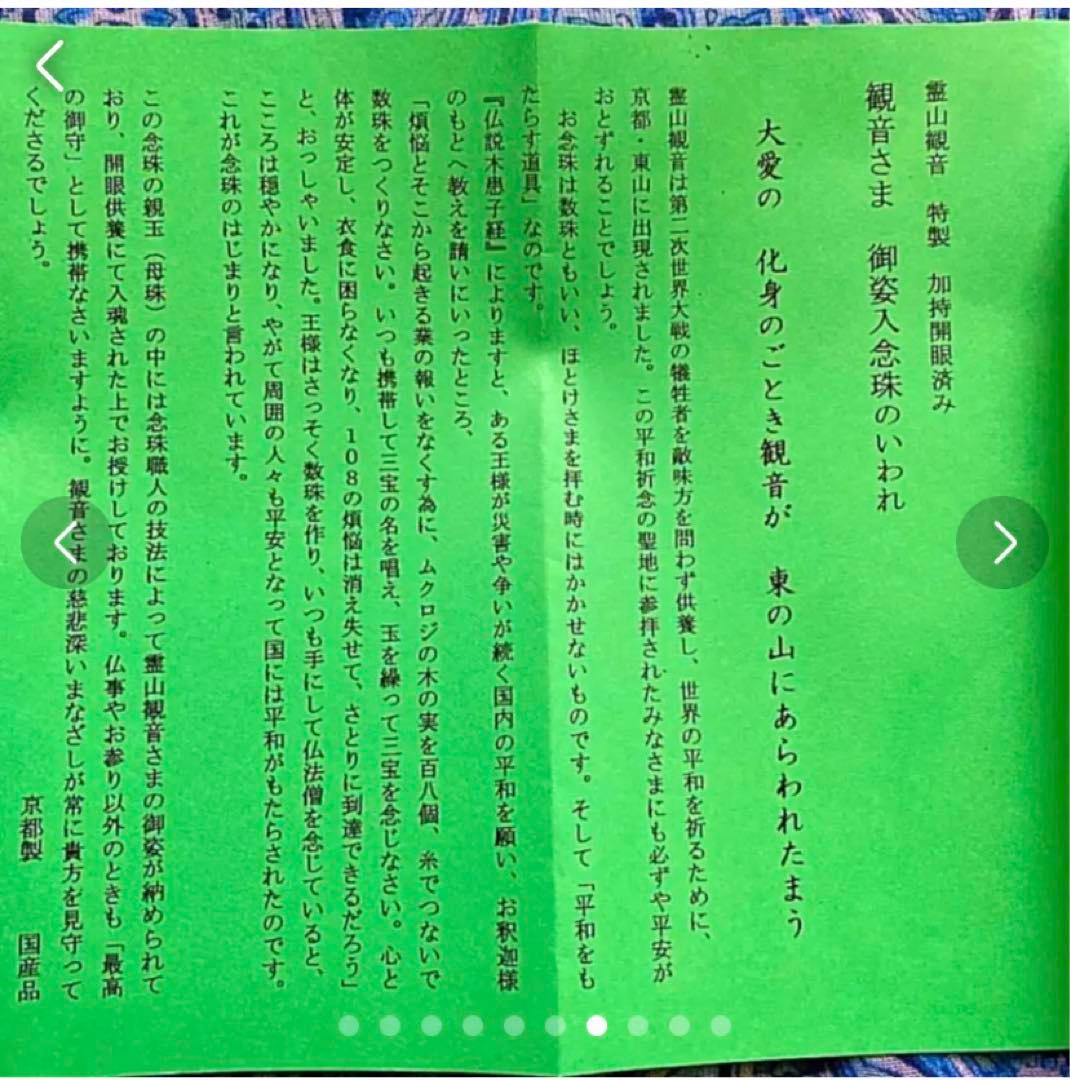 霊山観音　特製　加持開眼済み
観音さま　御姿入念珠のいわれ
大愛の　化身のごとき観音が　東の山にあらわれたまう
霊山観音は第二次世界大戦の犠牲者を敵味方を問わず供養し、世界の平和を祈るために、
京都・東山に出現されました。この平和祈念の聖地に参拝されたみなさまにも必ずや平安が
おとずれることでしょう。
お念珠は数珠ともいい、ほとけさまを拝む時にはかかせないものです。そして「平和をも
たらす道具」なのです。
『仏説木患子経』によりますと、ある王様が災害や争いが続く国内の平和を願い、お釈迦様
のもとへ教えを請いにいったところ、
「煩悩とそこから起きる業の報いをなくす為に、ムクロジの木の実を百八個、糸でつないで
数珠をつくりなさい。いつも携帯して三宝の名を唱え、玉を繰って三宝を念じなさい。心と
体が安定し、衣食に困らなくなり、108の煩悩は消え失せて、さとりに到達できるだろう」
と、おっしゃいました。王様はさっそく数珠を作り、いつも手にして仏法僧を念じていると、
こころは穏やかになり、やがて周囲の人々も平安となって国には平和がもたらされたのです。
これが念珠のはじまりと言われています。
この念珠の親玉（母珠）の中には念珠職人の技法によって霊山観音さまの御姿が納められて
おり、開眼供養にて入魂された上でお授けしております。仏事やお参り以外のときも「最高
の御守」として携帯なさいますように。観音さまの慈悲深いまなざしが常に貴方を見守って
くださるでしょう。
京都製　国産品